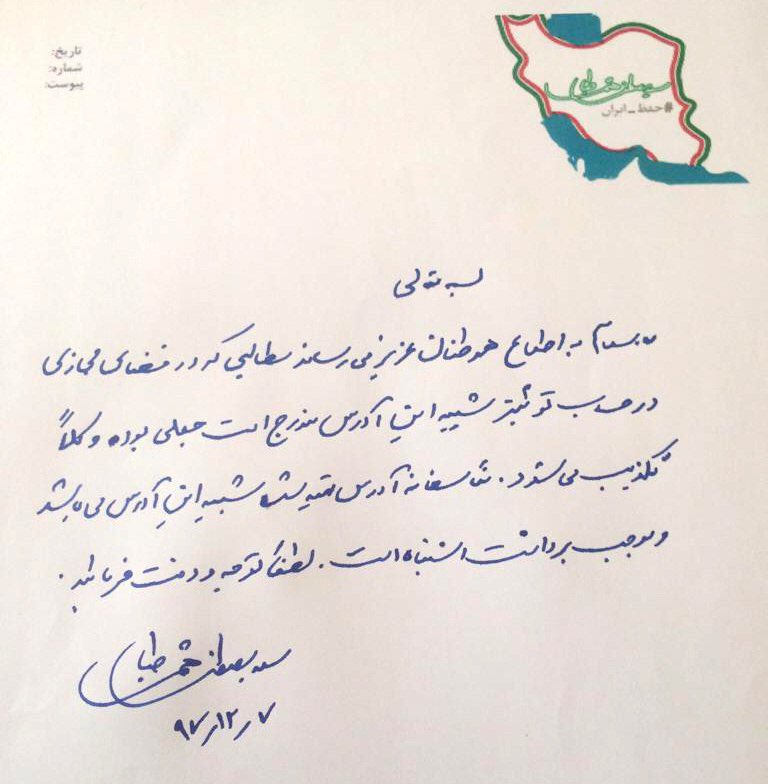 تاریخ:
شماره:
پیوست:
سید مصطفی هاشمی طبا
#حفظ_ایران
بسمه تعالی
با سلام به اطلاع هموطنان عزیز می رساند مطالبی که در فضای مجازی
در حساب توئیتر شبیه این آدرس مندرج است جعلی بوده و کلاً
تکذیب می شود. متأسفانه آدرس تهیه شده شبیه این آدرس می باشد
و موجب برداشت اشتباه است. لطفاً توجه و دقت فرمائید.
سید مصطفی هاشمی طبا
۹۷٫۱۲٫۷